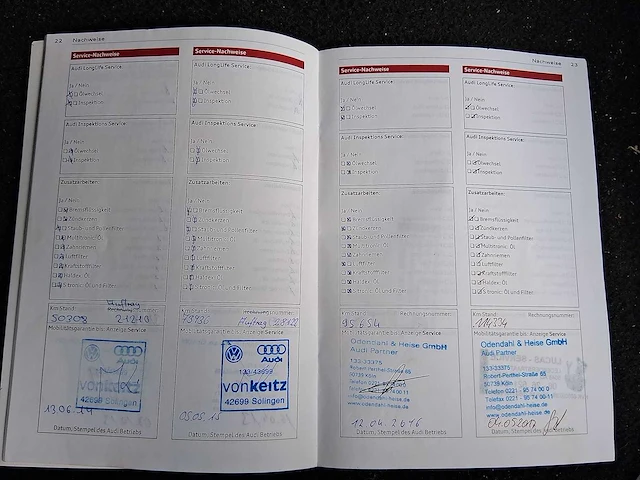 22 Nachweise
Service-Nachweise
Audi LongLife Service:
Ja / Nein
Ölwechsel
Inspektion
Audi Inspektions Service:
Ja / Nein
Ölwechsel
Inspektion
Zusatzarbeiten:
Ja / Nein
Bremsflüssigkeit
Zündkerzen
Staub- und Pollenfilter
Multitronic Öl
Zahnriemen
Luftfilter
Kraftstofffilter
Haldex Öl
S tronic: Öl und Filter
Km Stand:
Auftrag
50308
Mobilitätsgarantie bis: Anzeige Service
Audi
von keitz
42699 Solingen
13.06.14
Datum, Stempel des Audi Betriebs
Service-Nachweise
Audi LongLife Service:
Ja / Nein
Ölwechsel
Inspektion
Audi Inspektions Service:
Ja / Nein
Ölwechsel
Inspektion
Zusatzarbeiten:
Ja / Nein
Bremsflüssigkeit
Zündkerzen
Staub- und Pollenfilter
Multitronic Öl
Zahnriemen
Luftfilter
Kraftstofffilter
Haldex Öl
S tronic: Öl und Filter
Km Stand:
Auftrag
Mobilitätsgarantie bis: Anzeige Service
Audi
vonkeitz
42699 Solingen
05.05.15
Datum, Stempel des Audi Betriebs
Nachweise 23
Service-Nachweise
Audi LongLife Service:
Ja / Nein
Ölwechsel
Inspektion
Audi Inspektions Service:
Ja / Nein
Ölwechsel
Inspektion
Zusatzarbeiten:
Ja / Nein
Bremsflüssigkeit
Zündkerzen
Staub- und Pollenfilter
Multitronic: Öl
Zahnriemen
Luftfilter
Kraftstofffilter
Haldex: Öl
S tronic: Öl und Filter
Km Stand: Rechnungsnummer:
95654
Mobilitätsgarantie bis: Anzeige Service
Odendahl & Heise GmbH
Audi Partner
133-33375
Robert-Perthel-Straße 65
50739 Köln
info@odendahl-heise.de
www.odendahl-heise.de
12.04.2016
Datum, Stempel des Audi Betriebs
Service-Nachweise
Audi LongLife Service:
Ja / Nein
Ölwechsel
Inspektion
Audi Inspektions Service:
Ja / Nein
Ölwechsel
Inspektion
Zusatzarbeiten:
Ja / Nein
Bremsflüssigkeit
Zündkerzen
Staub- und Pollenfilter
Multitronic: Öl
Zahnriemen
Luftfilter
Kraftstofffilter
Haldex: Öl
S tronic: Öl und Filter
Km Stand: Rechnungsnummer:
Mobilitätsgarantie bis: Anzeige Service
Odendahl & Heise GmbH
Audi Partner
133-33375
Robert-Perthel-Straße 65
50739 Köln
Telefon 0221 - 95 74 00 0
Telefax 0221 - 95 74 00 11
info@odendahl-heise.de
www.odendahl-heise.de
Datum, Stempel des Audi Betriebs